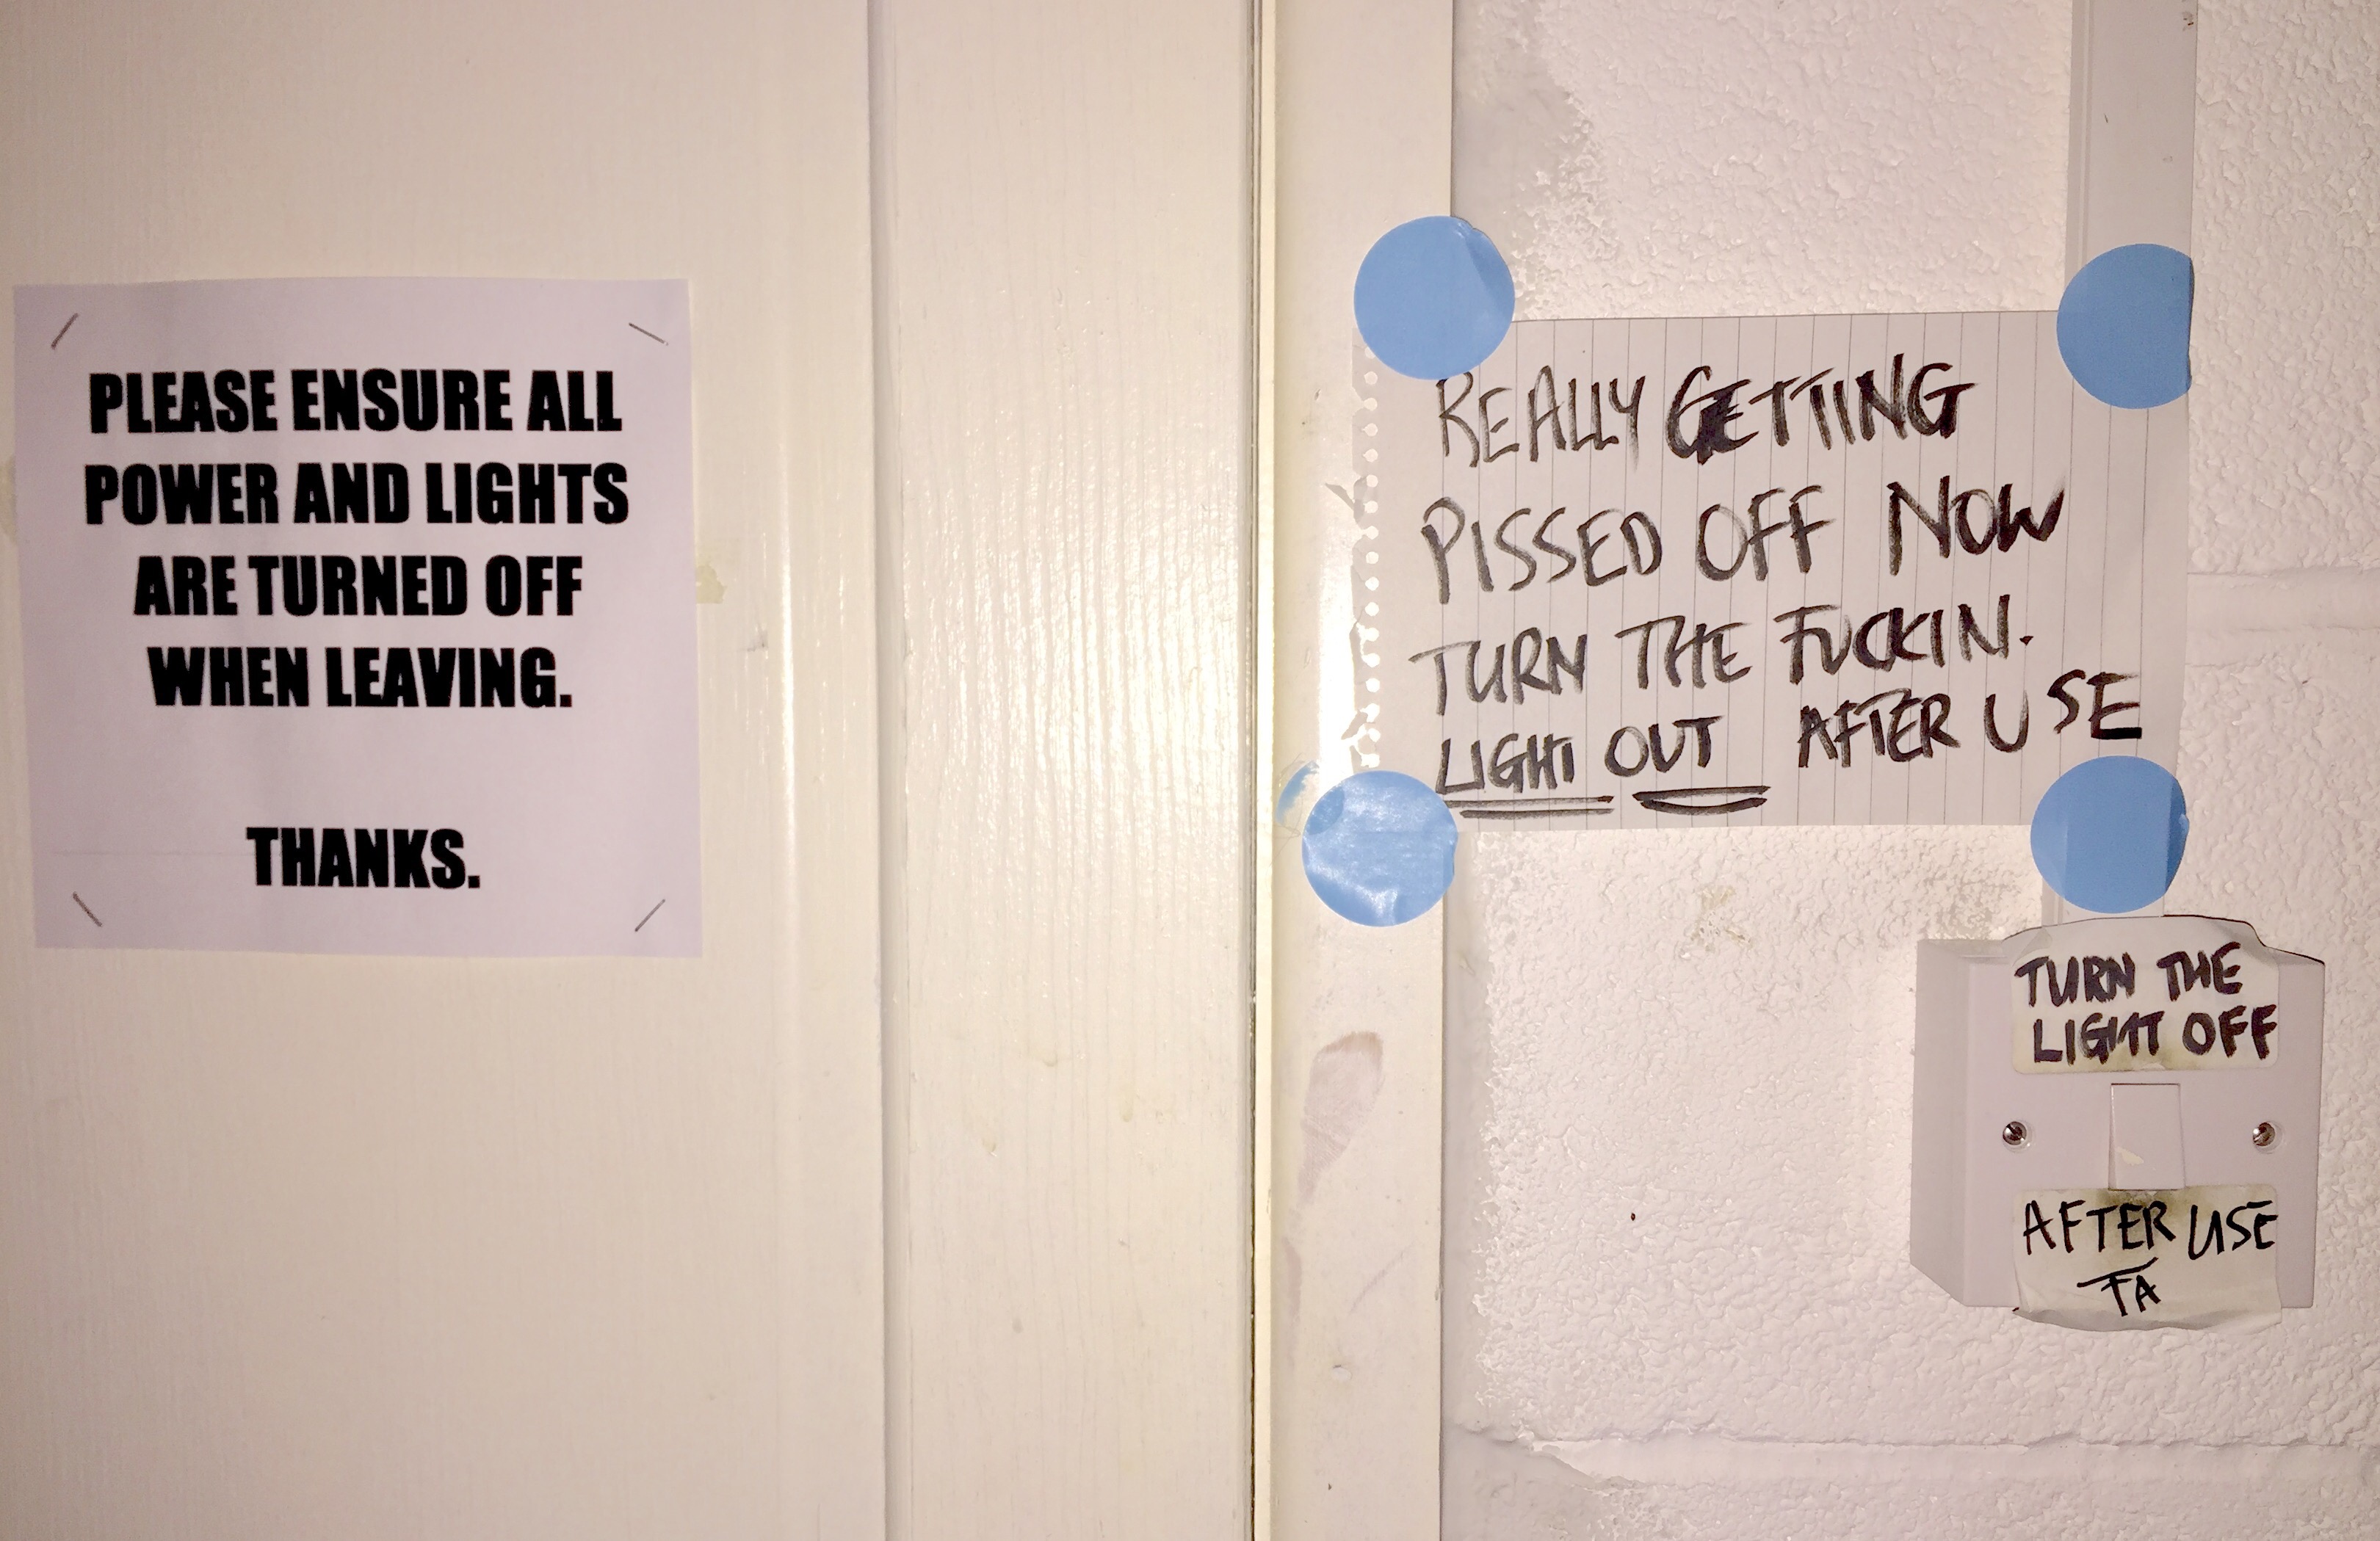 PLEASE ENSURE ALL
POWER AND LIGHTS
ARE TURNED OFF
WHEN LEAVING.
THANKS.
REALLY GETTING
PISSED OFF NOW
TURN THE FUCKIN.
LIGHT OUT AFTER USE
TURN THE
LIGHT OFF
AFTER USE
TA